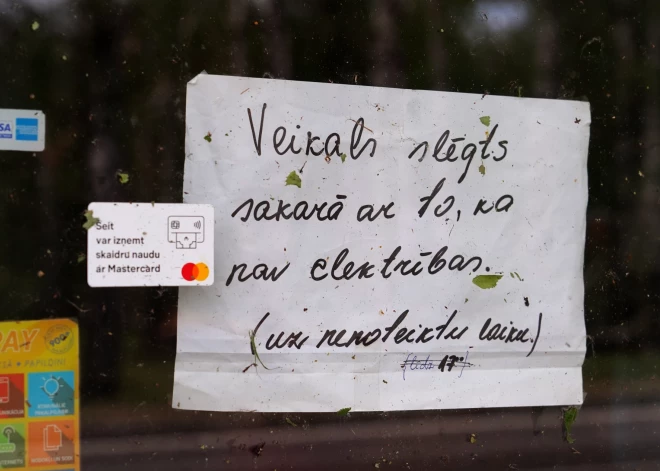 VISA
Veikals slēgts
sakarā ar to, ka
nav elektrības.
(uz nenoteiktu laiku.)
(līdz 17⁰⁰)
Šeit
var izņemt
skaidru naudu
ar Mastercard
AY
PAPILDINI